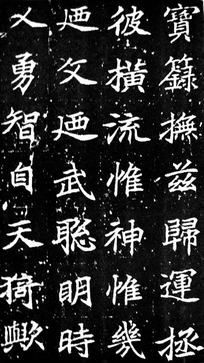 寶籙撫茲歸運拯
彼橫流惟神惟幾
迺文迺武聡明時
乂勇智自天猗歟